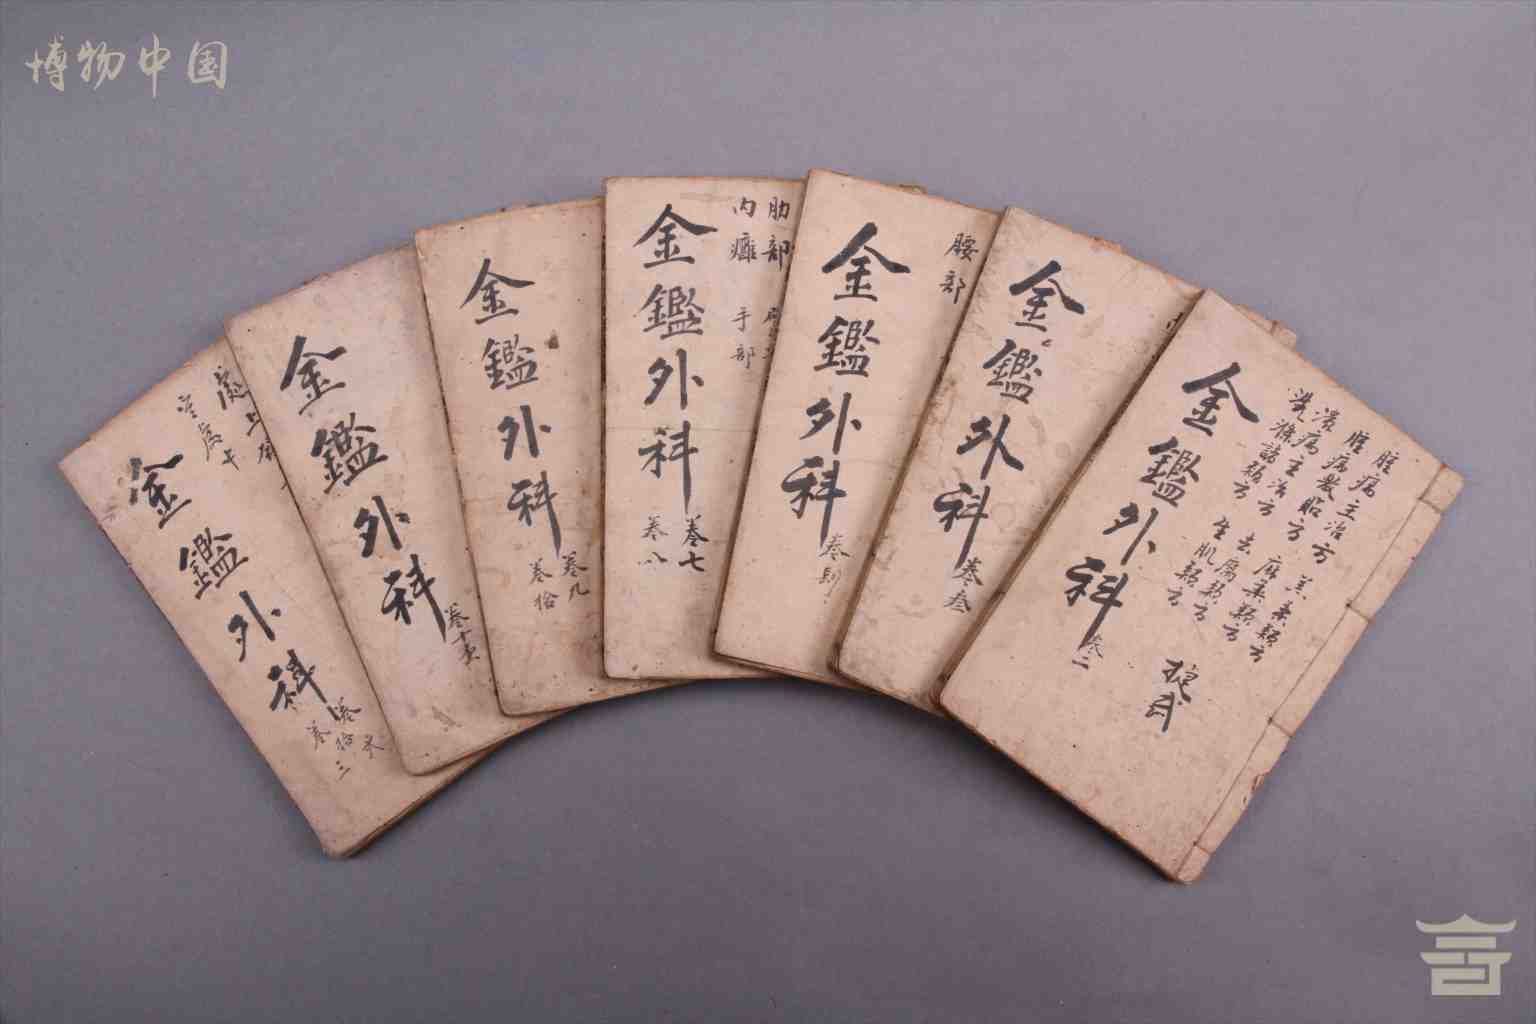 博物中国
腫瘍主治方
腫瘍敷貼方
潰瘍主治方 麻藥類方
洗滌諸類方 去腐類方
生肌類方
金鑑外科
卷二
金鑑外科
卷叁
腰部
金鑑外科
肋部
内癰 手部
金鑑外科
卷七
卷八
金鑑外科
卷九
卷拾
金鑑外科
金鑑外科
卷拾三